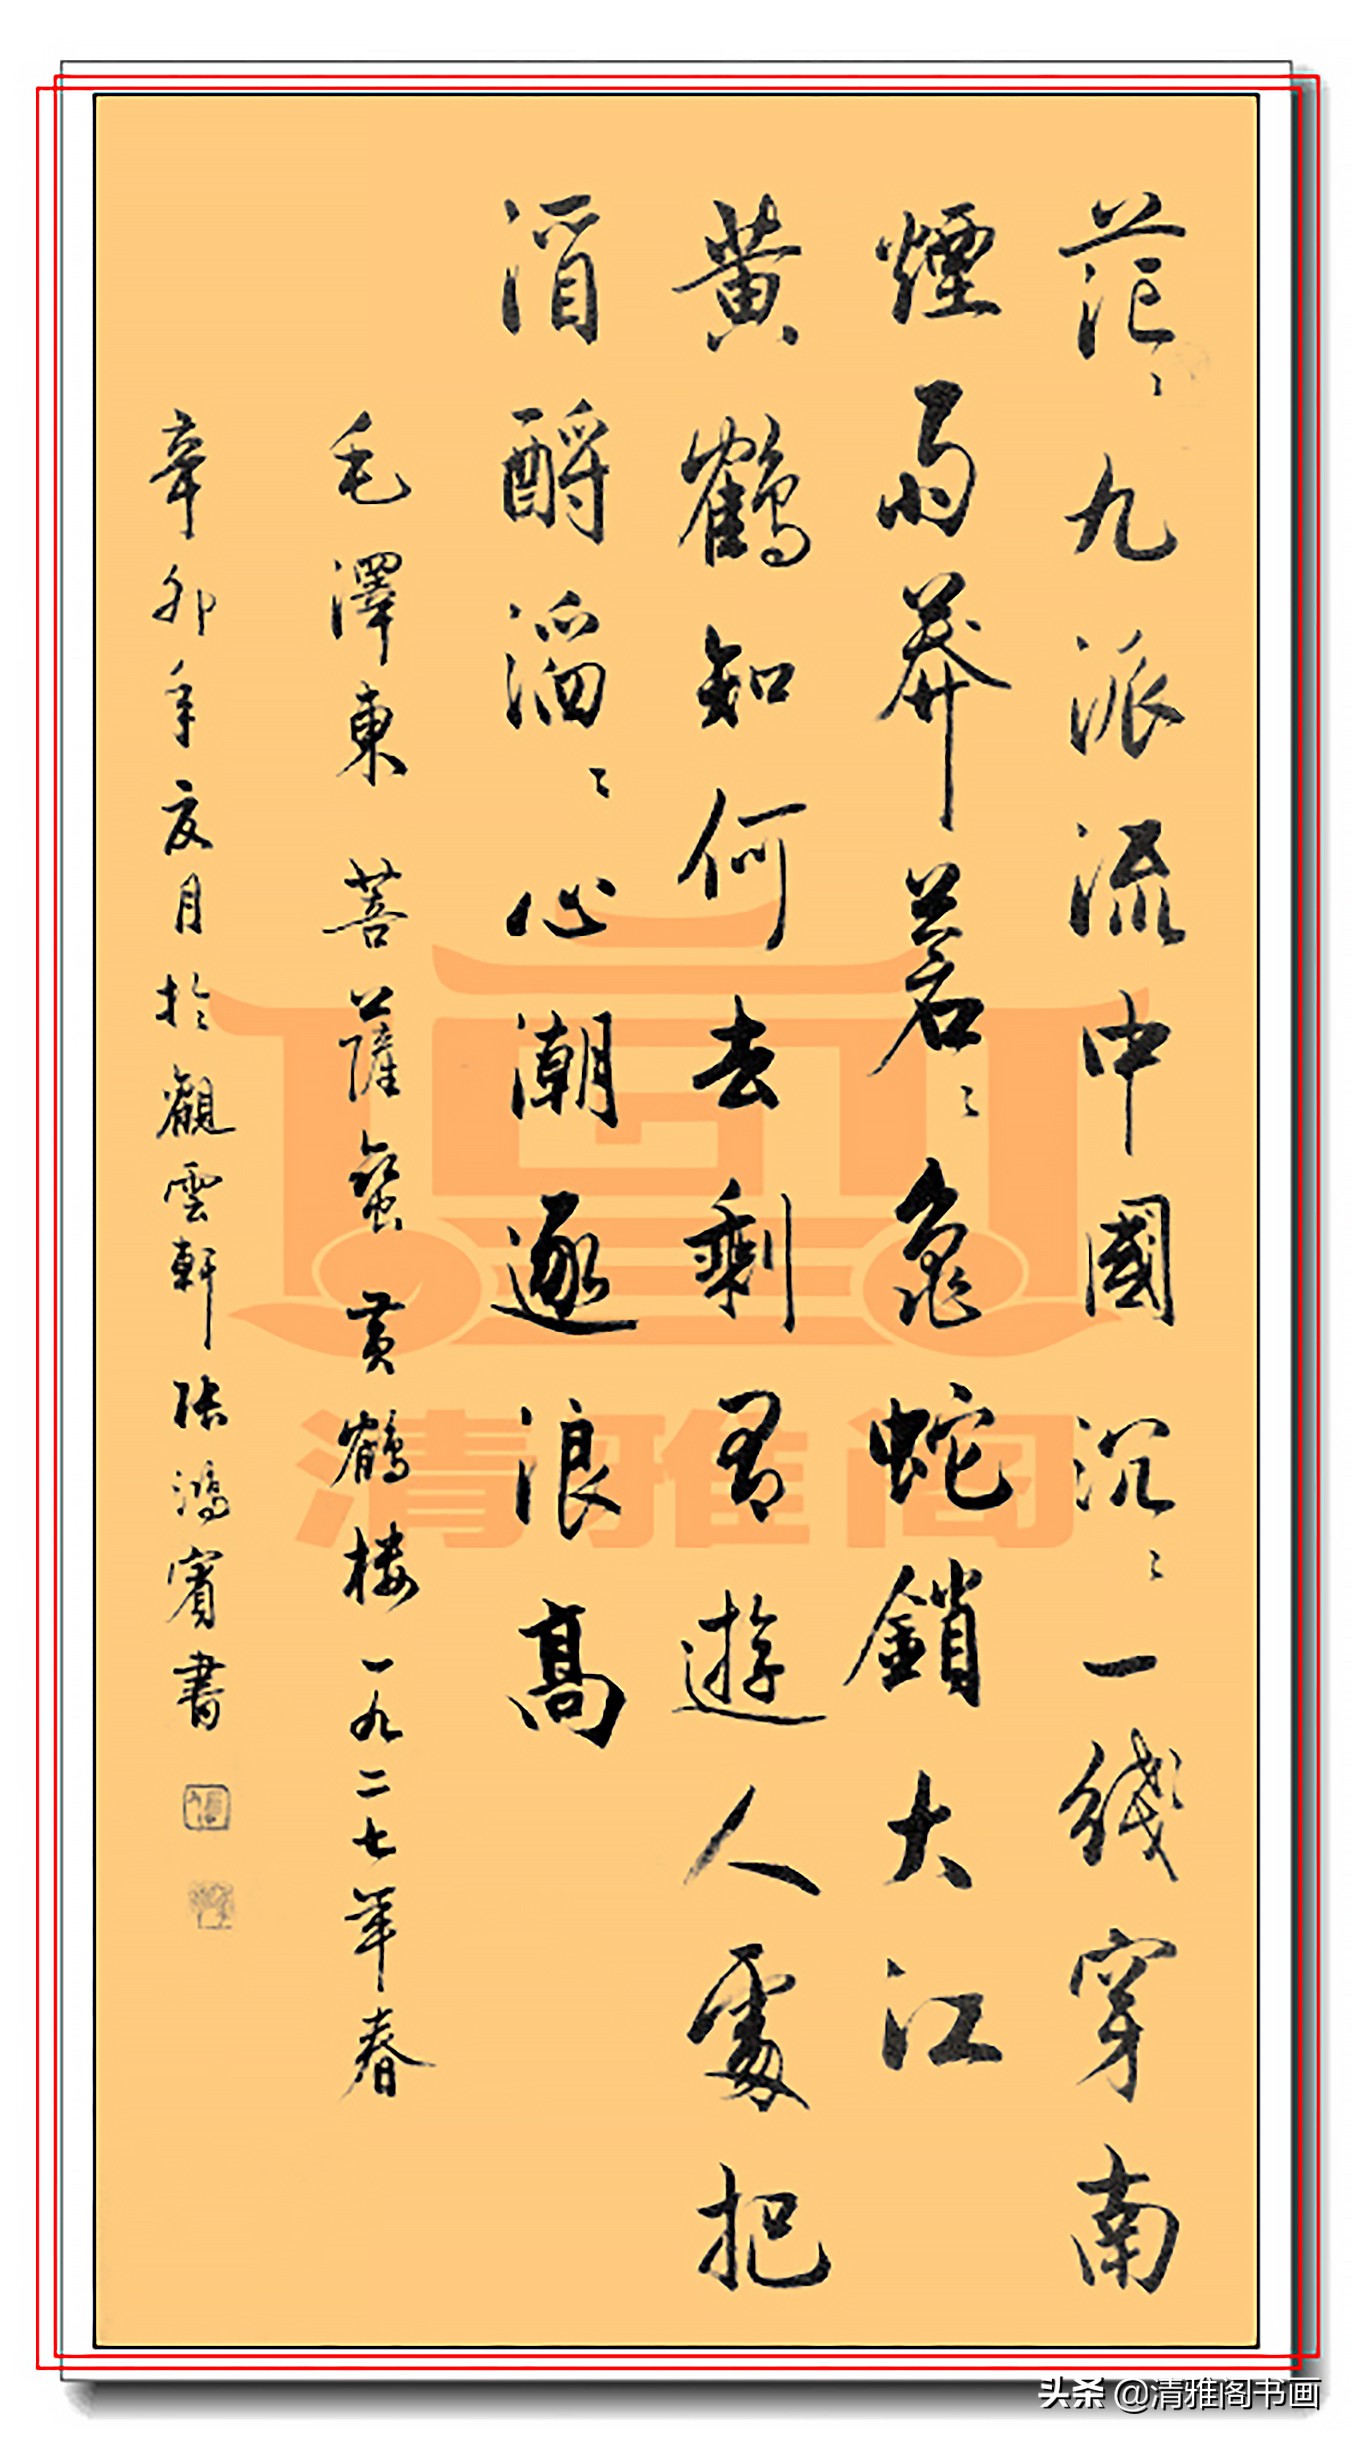 茫〻九派流中國沉〻一綫穿南
煙雨莽蒼〻龜蛇鎖大江
黄鶴知何去剩有遊人處把
酒酹滔〻心潮逐浪高
毛澤東 菩薩蛮 黄鶴楼 一九二七年春
辛卯年亥月於觀雲軒张鴻賓書
清雅阁
头条 @清雅阁书画